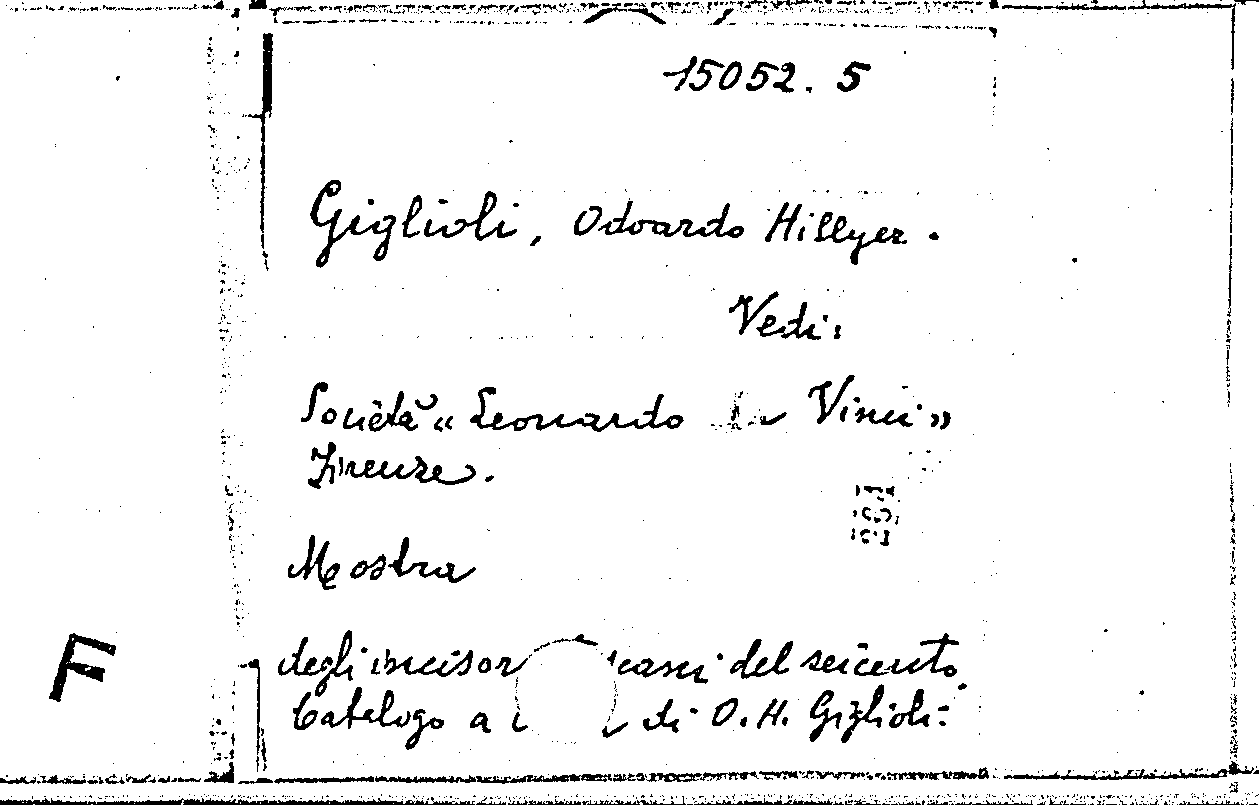 15052. 5
Giglioli, Odoardo Hillyer.
Vedi:
Società "Leonardo da Vinci"
Firenze.
Mostra
degli incisor cani del seicento
Catalogo a di O. H. Giglioli:
F